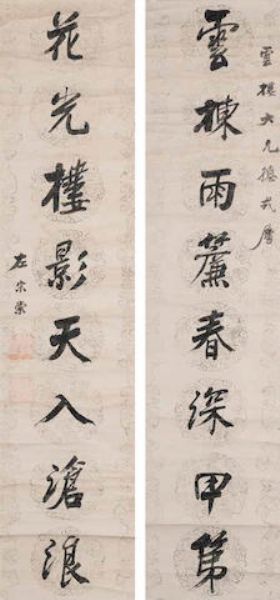 雲樓大兄總戎屬
雲棟雨簾春深甲第
花光樓影天入滄浪
左宗棠